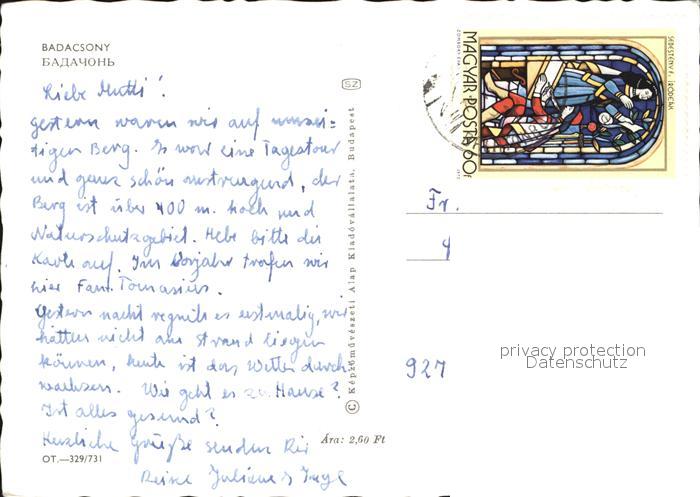 BADACSONY
БАДАЧОНЬ
Liebe Mutti!
gestern waren wir auf umsei-
tigen Berg. Es war eine Tagestour
und ganz schön anstrengend, der
Berg ist über 400 m. hoch und
Naturschutzgebiet. Hebe bitte die
Karte auf. Im Vorjahr trafen wir
hier Fam. Tomasius.
Gestern nacht regnete es erstmalig, wir
hätten nicht am Strand liegen
können, heute ist das Wetter durch
wachsen. Wie geht es zu Hause?
Ist alles gesund?
Herzliche Grüße senden Dir
OT.—329/731
Ára: 2,60 Ft
SZ
© Képzőművészeti Alap Kiadóvállalata, Budapest
MAGYAR POSTA 60f
1972
Fr.
927
privacy protection
Datenschutz